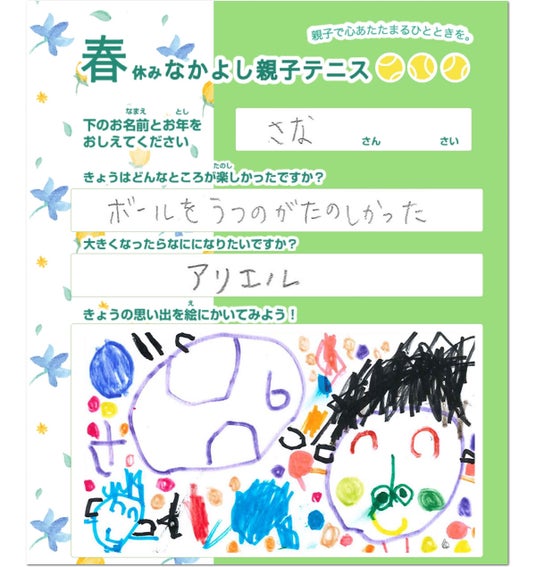 親子で心あたたまるひとときを。
春休みなかよし親子テニス
なまえ とし
下のお名前とお年を
おしえてください
さな さん さい
たのし
きょうはどんなところが楽しかったですか？
ボールをうつのがたのしかった
大きくなったらなにになりたいですか？
アリエル
え
きょうの思い出を絵にかいてみよう！